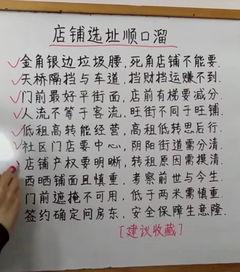 店铺选址顺口溜
✓金角银边垃圾腰,死角店铺不能要.
✓天桥隔挡与车道,挡财挡运赚不到.
✓门前最好平街面,店前有梯要减分.
✓人流不等于客流,旺街不同于旺铺.
✓低租高转能经营,高租低转思后行.
✓社区门店要中心,阴阳街道需分清.
✓店铺产权要明晰,转租原因需摸清.
西晒铺面且慎重,考察前世与今生.
门前遮掩不可用,低于两米需慎重.
签约确定问房东,安全保障生意隆.
[建议收藏]